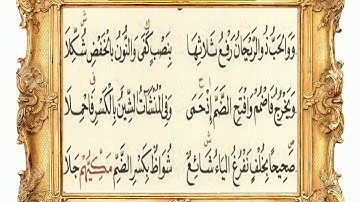 وَوَالْحَبُّ ذُو الرَّيْحَانِ رَفْعُ ثَلَاثِهَا بِنَصْبٍ كَفَى وَالنُّونُ بِالْخَفْضِ شُكِّلَا
وَيَخْرُجُ فَاضْمُمْ وَافْتَحِ الضَّمَّ إِذْ حَمَى وَفِي الْمُنْشَآتُ الشِّينُ بِالْكَسْرِ فَاحْمِلَا
صَحِيحًا بِخُلْفٍ نَفْرُغُ الْيَاءُ شَائِعٌ شُوَاظٌ بِكَسْرِ الضَّمِّ مَكِّيُّهُمْ جَلَا